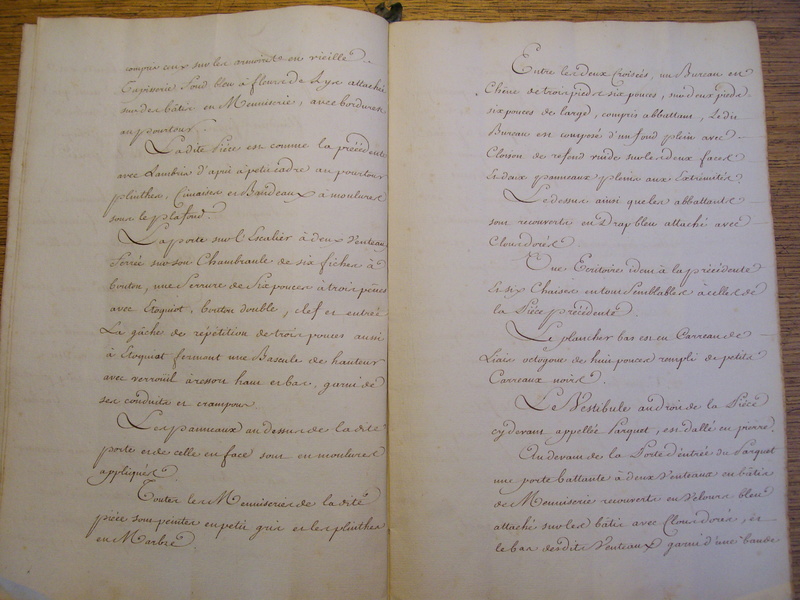 compris ceux sur les armoires en vieille
Tapisserie fond bleu à fleurs de Lys attachée
sur des bâtis en Menuiserie, avec bordures
au pourtour.
Ladite Pièce est comme la précédente
avec Lambris d'apui à petit cadre au pourtour
plinthes, Cimaises et Bandeaux à moulures
sous le plafond.
La porte sur l'Escalier à deux Venteaux
ferrée sur son Chambranle de six fiches à
bouton, une Serrure de Six pouces à trois pênes
avec Etoquiot, bouton double, clef et entrée
La gâche de répétition de trois pouces aussi
à Etoquiot fermant une Bascule de hauteur
avec verrouil à ressort haut et bas, garnie de
ses conduits et crampons
Les panneaux au dessus de la dite
porte et de celle en face sont en moulures
appliquées
Toutes les Menuiseries de la dite
pièce sont peintes en petit gris et les plinthes
en Marbre
Entre les deux Croisées, un Bureau en
Chêne de trois pieds six pouces, sur deux pieds
six pouces de large, compris abbattans, Le dit
Bureau est composé d'un fond plein avec
Cloison de refend sur les deux faces
Et deux panneaux pleins aux Extrémités.
Le dessus ainsi que les abbattans
sont recouverts en Drap bleu attaché avec
Clous dorés
Une Ecritoire idem à la précédente
Et six Chaises en tout Semblables à celles de
la Pièce précédente.
Le plancher bas est en Carreau de
Liais octogone de huit pouces rempli de petits
Carreaux noirs.
Le Vestibule au droit de la Pièce
cy devant appellée Parquet, est dallé en pierre.
Au devant de la Porte d'entrée du Parquet
une porte battante à deux Venteaux en bâtis
de Menuiserie recouverts en Velours bleu
attaché sur les bâtis avec Clous dorés, et
le bas desdits Venteaux garni d'une bande